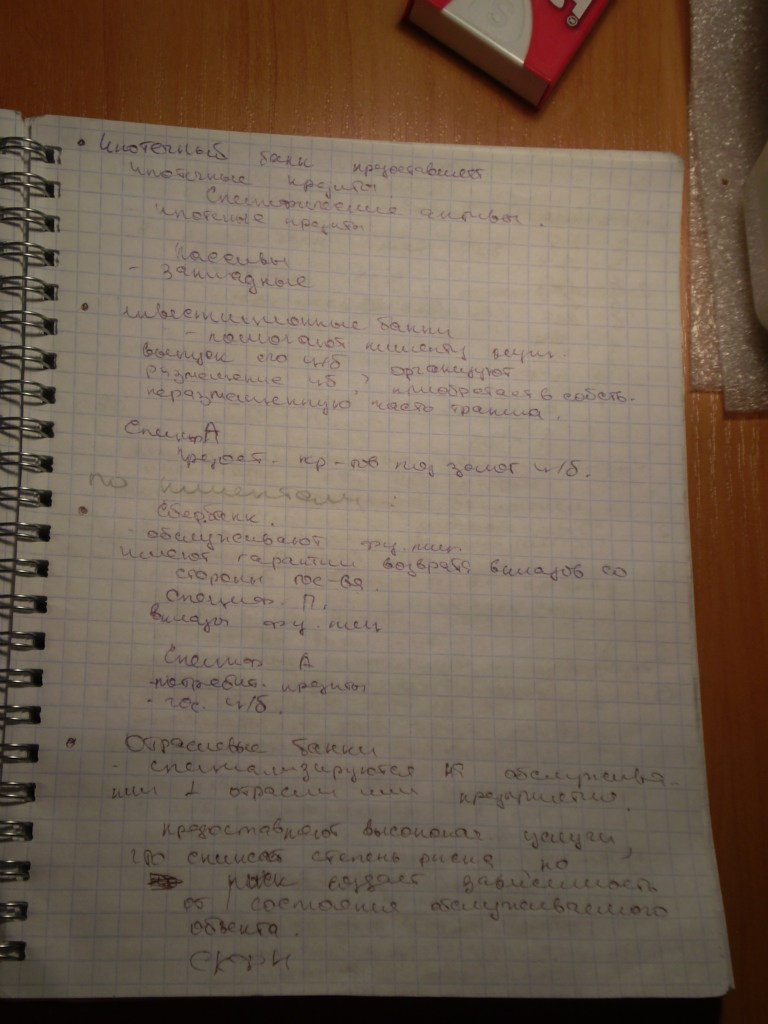 • Ипотечный банк предоставляет
ипотечные кредиты
Специфические активы.
ипотечные кредиты
Пассивы
- закладные
• инвестиционные банки
- помогают клиенту
выпуск его ц/б, организуют
размещение цб, приобретает в собств.
неразмещенную часть транша.
Специф А
Предост. кр-тов под залог ц/б.
по клиентам:
• Сбербанк.
- обслуживают физ. лиц.
имеют гарантии возврата вкладов со
стороны гос-ва.
Специф. П.
вклады физ. лиц
Специф А
- потребит. кредиты
- гос. ц/б.
• Отраслевые банки
- специализируются на обслужива-
нии 1 отрасли или предприятия.
предоставляют высококач. услуги,
что снижает степень риска, но
риск создает зависимость
от состояния обслуживаемого
объекта.